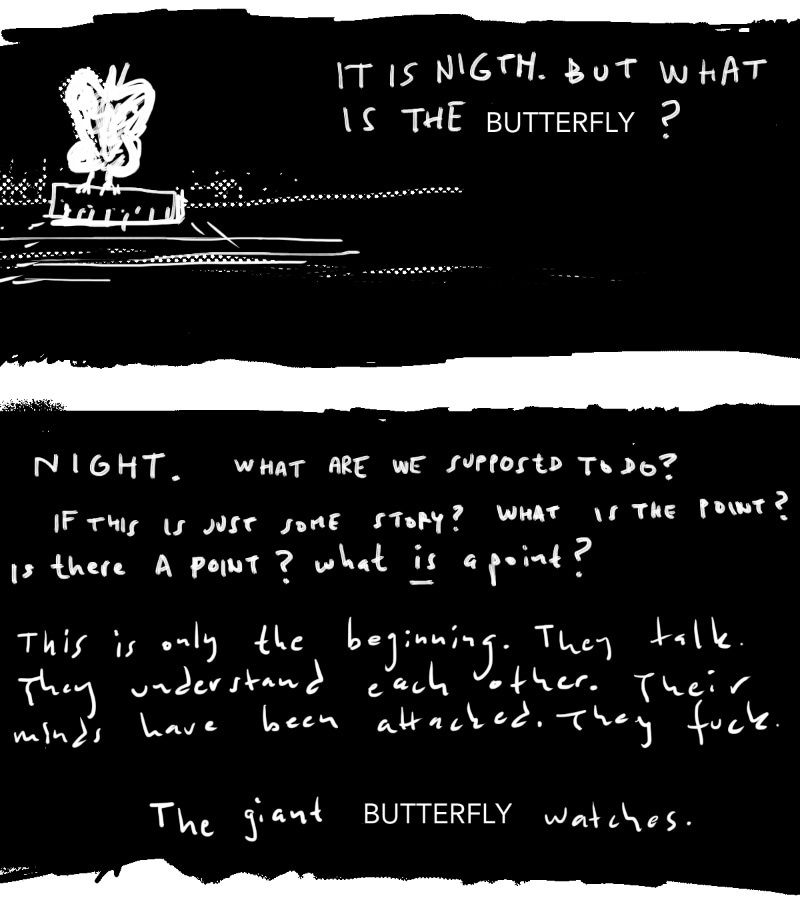 IT IS NIGTH. BUT WHAT
IS THE BUTTERFLY ?
NIGHT. WHAT ARE WE SUPPOSED TO DO?
IF THIS IS JUST SOME STORY? WHAT IS THE POINT?
Is there A POINT? what is a point?
This is only the beginning. They talk.
They understand each other. Their
minds have been attached. They fuck.
The giant BUTTERFLY watches.